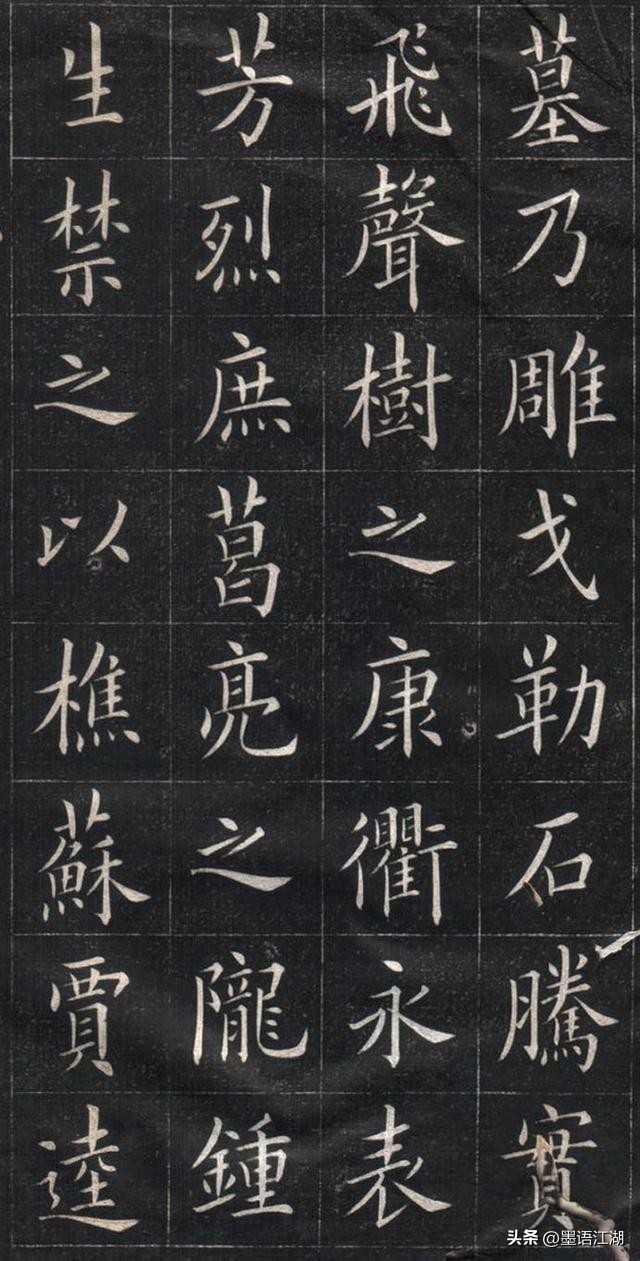 墓乃雕戈勒石騰實
飛聲樹之康衢永表
芳烈庶葛亮之隴鍾
生禁之以樵蘇賈逵
头条 @墨语江湖